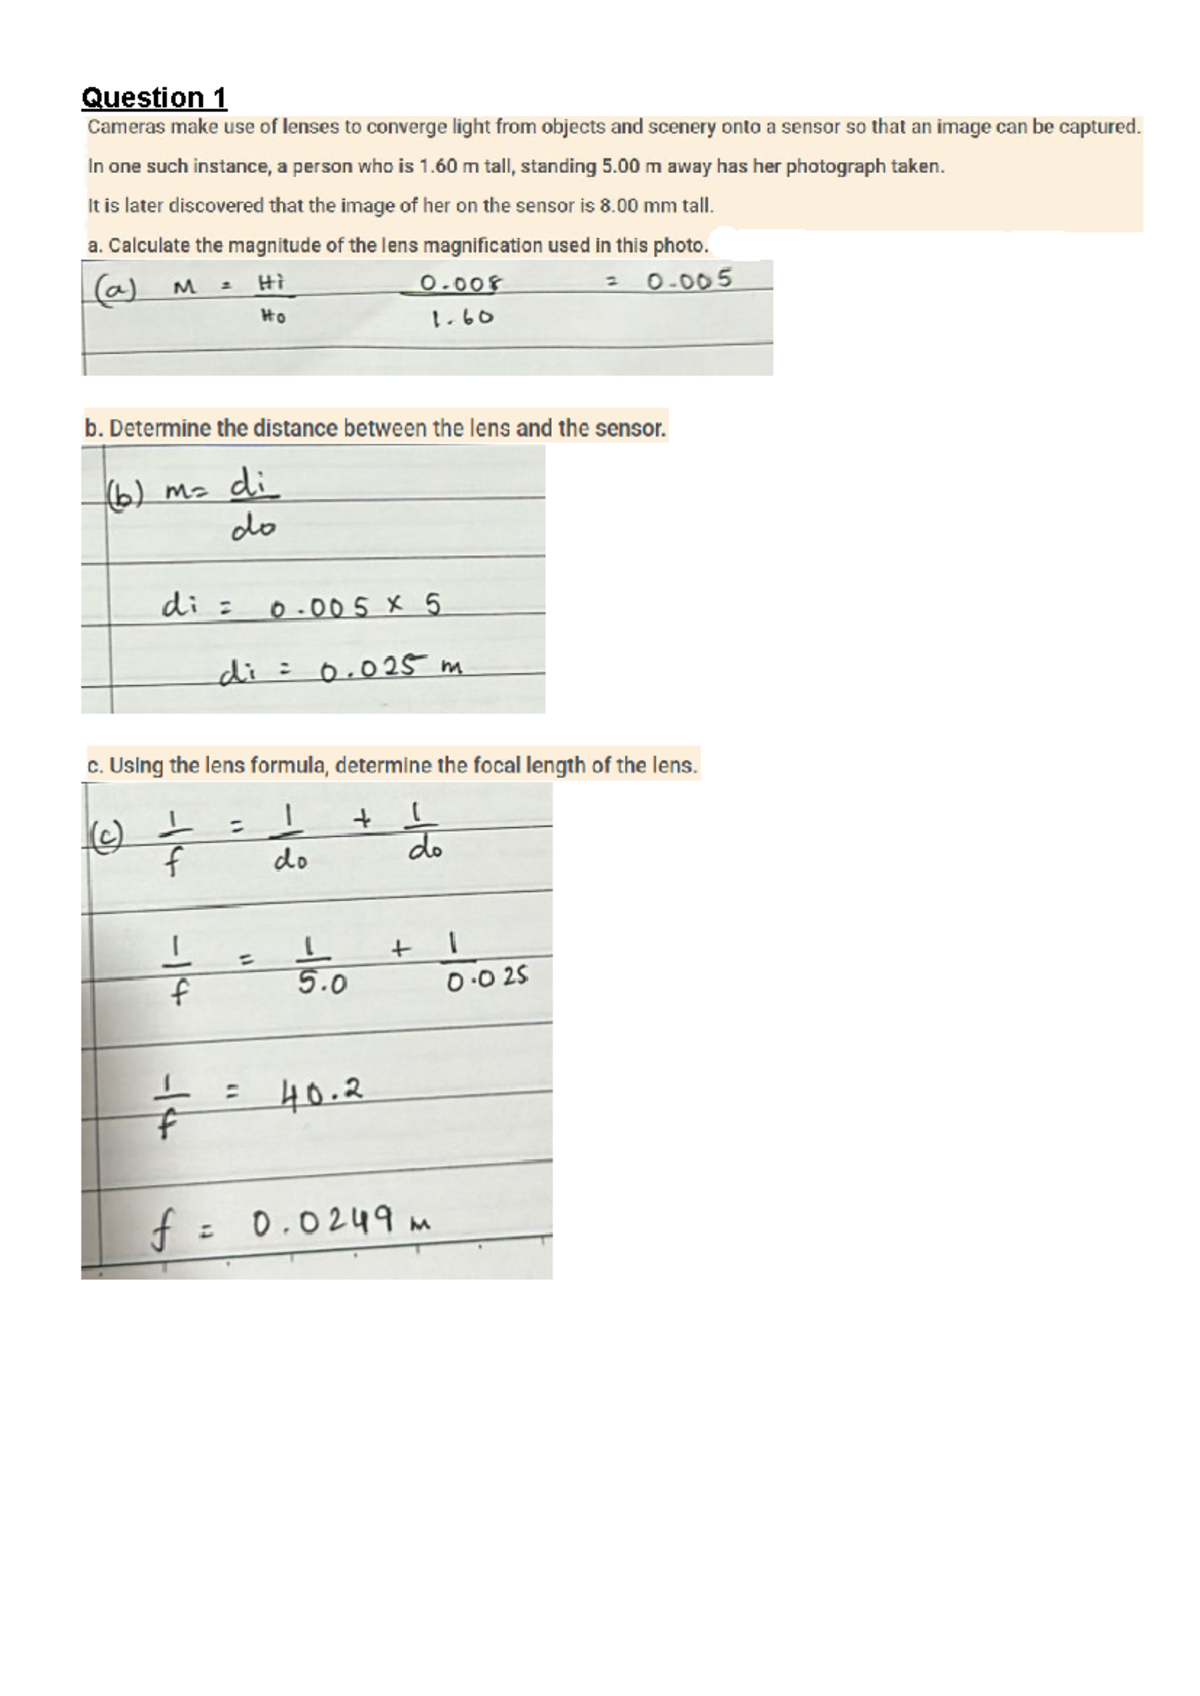 Question 1
Cameras make use of lenses to converge light from objects and scenery onto a sensor so that an image can be captured.
In one such instance, a person who is 1.60 m tall, standing 5.00 m away has her photograph taken.
It is later discovered that the image of her on the sensor is 8.00 mm tall.
a. Calculate the magnitude of the lens magnification used in this photo.
(a) M = Hi/Ho 0.008/1.60 = 0.005
b. Determine the distance between the lens and the sensor.
(b) m= di/do
di = 0.005 x 5
di = 0.025 m
c. Using the lens formula, determine the focal length of the lens.
(c) 1/f = 1/do + 1/do
1/f = 1/5.0 + 1/0.025
1/f = 40.2
f = 0.0249 m